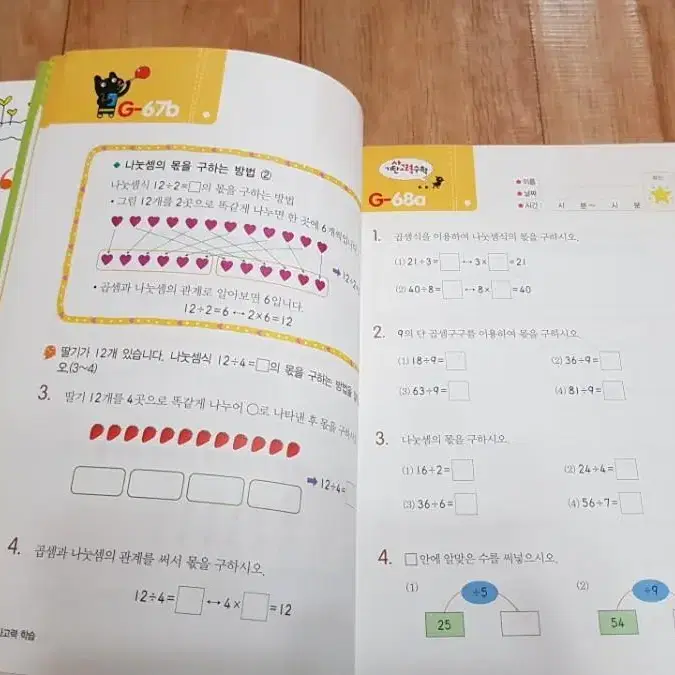 G-67b
◆ 나눗셈의 몫을 구하는 방법 ②
나눗셈식 12÷2=□의 몫을 구하는 방법
• 그림 12개를 2곳으로 똑같게 나누면 한 곳에 6개씩입니다
➡ 12÷2
• 곱셈과 나눗셈의 관계로 알아보면 6입니다.
12÷2=6 ↔ 2×6=12
딸기가 12개 있습니다. 나눗셈식 12÷4=□의 몫을 구하는 방법을
오.(3~4)
3. 딸기 12개를 4곳으로 똑같게 나누어 ○로 나타낸 후 몫을 구하
➡ 12÷4=
4. 곱셈과 나눗셈의 관계를 써서 몫을 구하시오.
12÷4=□ ↔ 4×□=12
사고력 학습
기탄사고력수학
G-68a
• 이름
• 날짜
• 시간 시 분 ~ 시 분
1. 곱셈식을 이용하여 나눗셈식의 몫을 구하시오.
(1) 21÷3=□ ↔ 3×□=21
(2) 40÷8=□ ↔ 8×□=40
2. 9의 단 곱셈구구를 이용하여 몫을 구하시오.
(1) 18÷9=□ (2) 36÷9=□
(3) 63÷9=□ (4) 81÷9=□
3. 나눗셈의 몫을 구하시오.
(1) 16÷2=□ (2) 24÷4=□
(3) 36÷6=□ (4) 56÷7=□
4. □ 안에 알맞은 수를 써넣으시오.
(1) ÷5 (2) ÷9
25 54